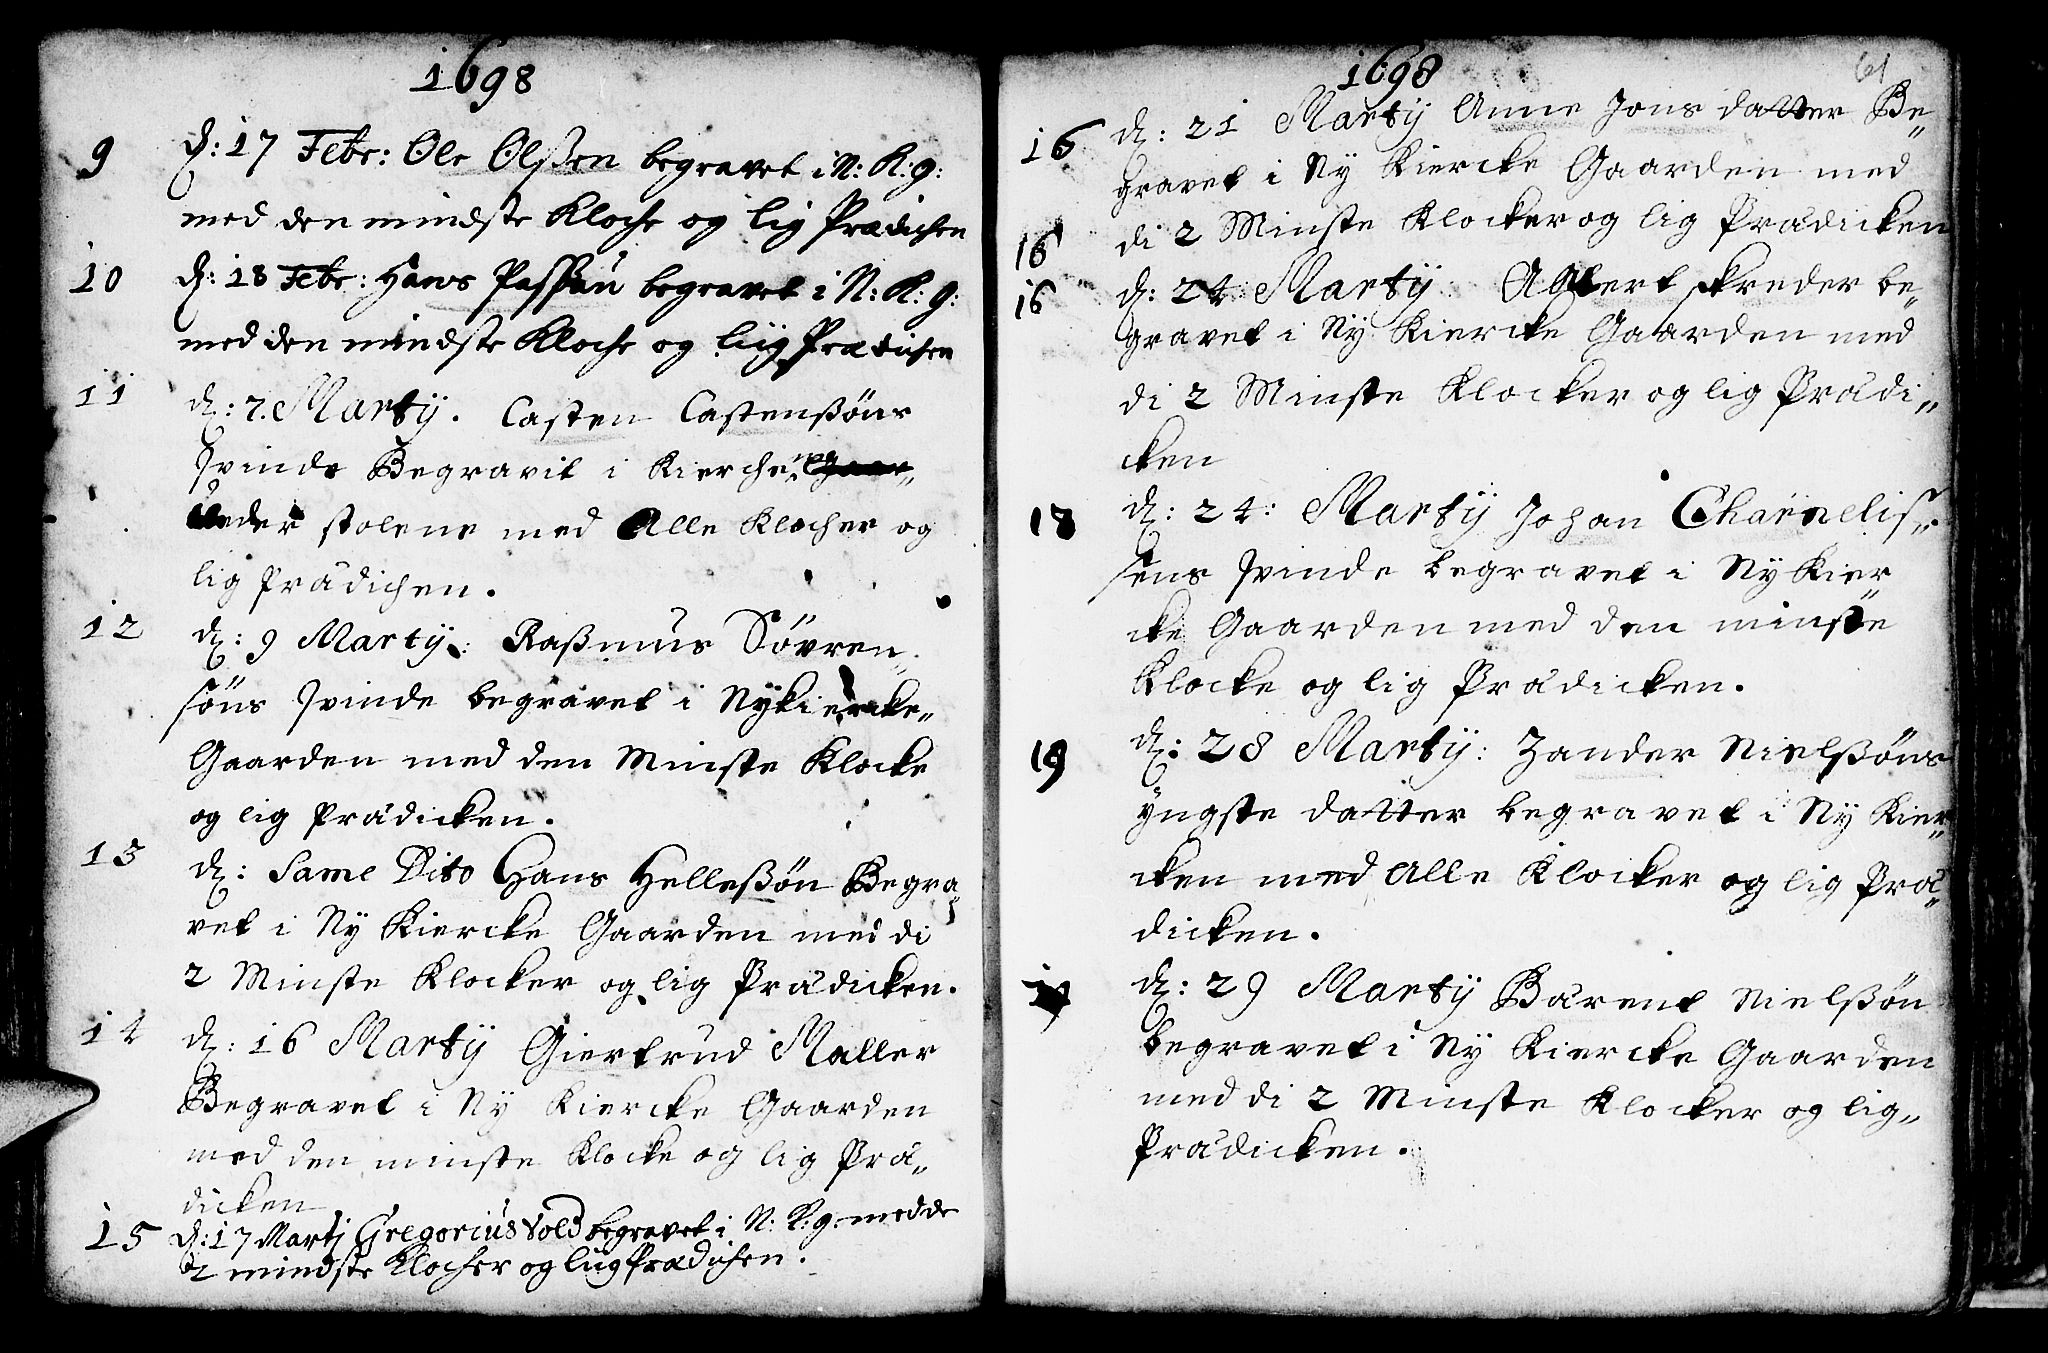 1698
9 d: 17 Febr: Ole Olßen begravet i N: K: g:
med den mindste Kloche og lig Prædichen
10 d: 18 Febr: Hans begravet i N: K: g:
med den mindste Kloche og liig Prædichen
11 d: 7. Martij. Casten Castenßöns
qvinde Begravit i Kierche
under stolene med Alle Klocher og
lig Prädichen.
12 d: 9 Martij: Raßmus Sövren„
söns qvinde begravet i Nykiercke„
Gaarden med den Minste Klocke
og lig Prädicken.
13 d: Same Dito Hans Helleßön Begra„
vet i Ny Kiercke Gaarden med di
2 Minste Klocker og lig Prädicken.
14 d: 16 Martij Giertrud Maller
Begravet i Ny Kiercke Gaarden
med den minste Klocke og lig Prä„
dicken
15 d: 17 Martj Gregorius Vold begravet i N: K: g: med de
2 mindste Klocher og liig Prædichen.
1698
61
16 d: 21 Martij Anne Jons datter Be„
gravet i Ny Kiercke Gaarden med
di 2 Minste Klocker og lig Prädicken
16
16 d: 24 Martij Albert skreder be„
gravet i Ny Kiercke Gaarden med
di 2 Minste Klocker og lig Prädi„
cken
18 d: 24: Martij Johan Charnelis„
sens qvinde begravet i Ny Kier„
cke Gaarden med den minste
Klocke og lig Prädicken.
19 d: 28 Martij: Zander Nielßöns
yngste datter begravet i Ny Kier„
cken med Alle Klocker og lig Prä„
dicken.
d: 29 Martij Bärent Nielßön
begravet i Ny Kiercke Gaarden
med di 2 Minste Klocker og lig„
Prädicken.